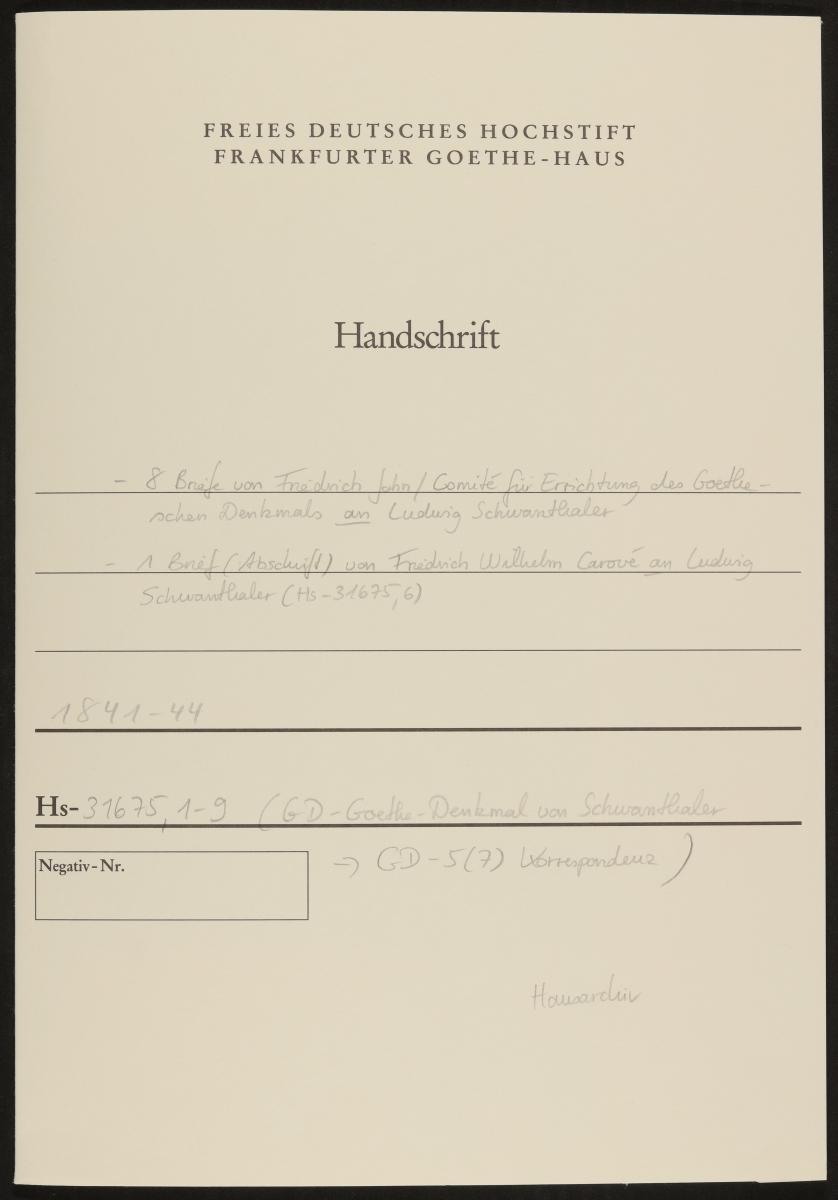 FREIES DEUTSCHES HOCHSTIFT
FRANKFURTER GOETHE-HAUS
Handschrift
- 8 Briefe von Friedrich John / Comité für Errichtung des Goethe-
schen Denkmals an Ludwig Schwanthaler
- 1 Brief (Abschrift) von Friedrich Wilhelm Carové an Ludwig
Schwanthaler (Hs-31675,6)
1841-44
Hs-31675, 1-9 (GD-Goethe-Denkmal von Schwanthaler
Negativ-Nr.
→ GD-5(7) Korrespondenz)
Hausarchiv